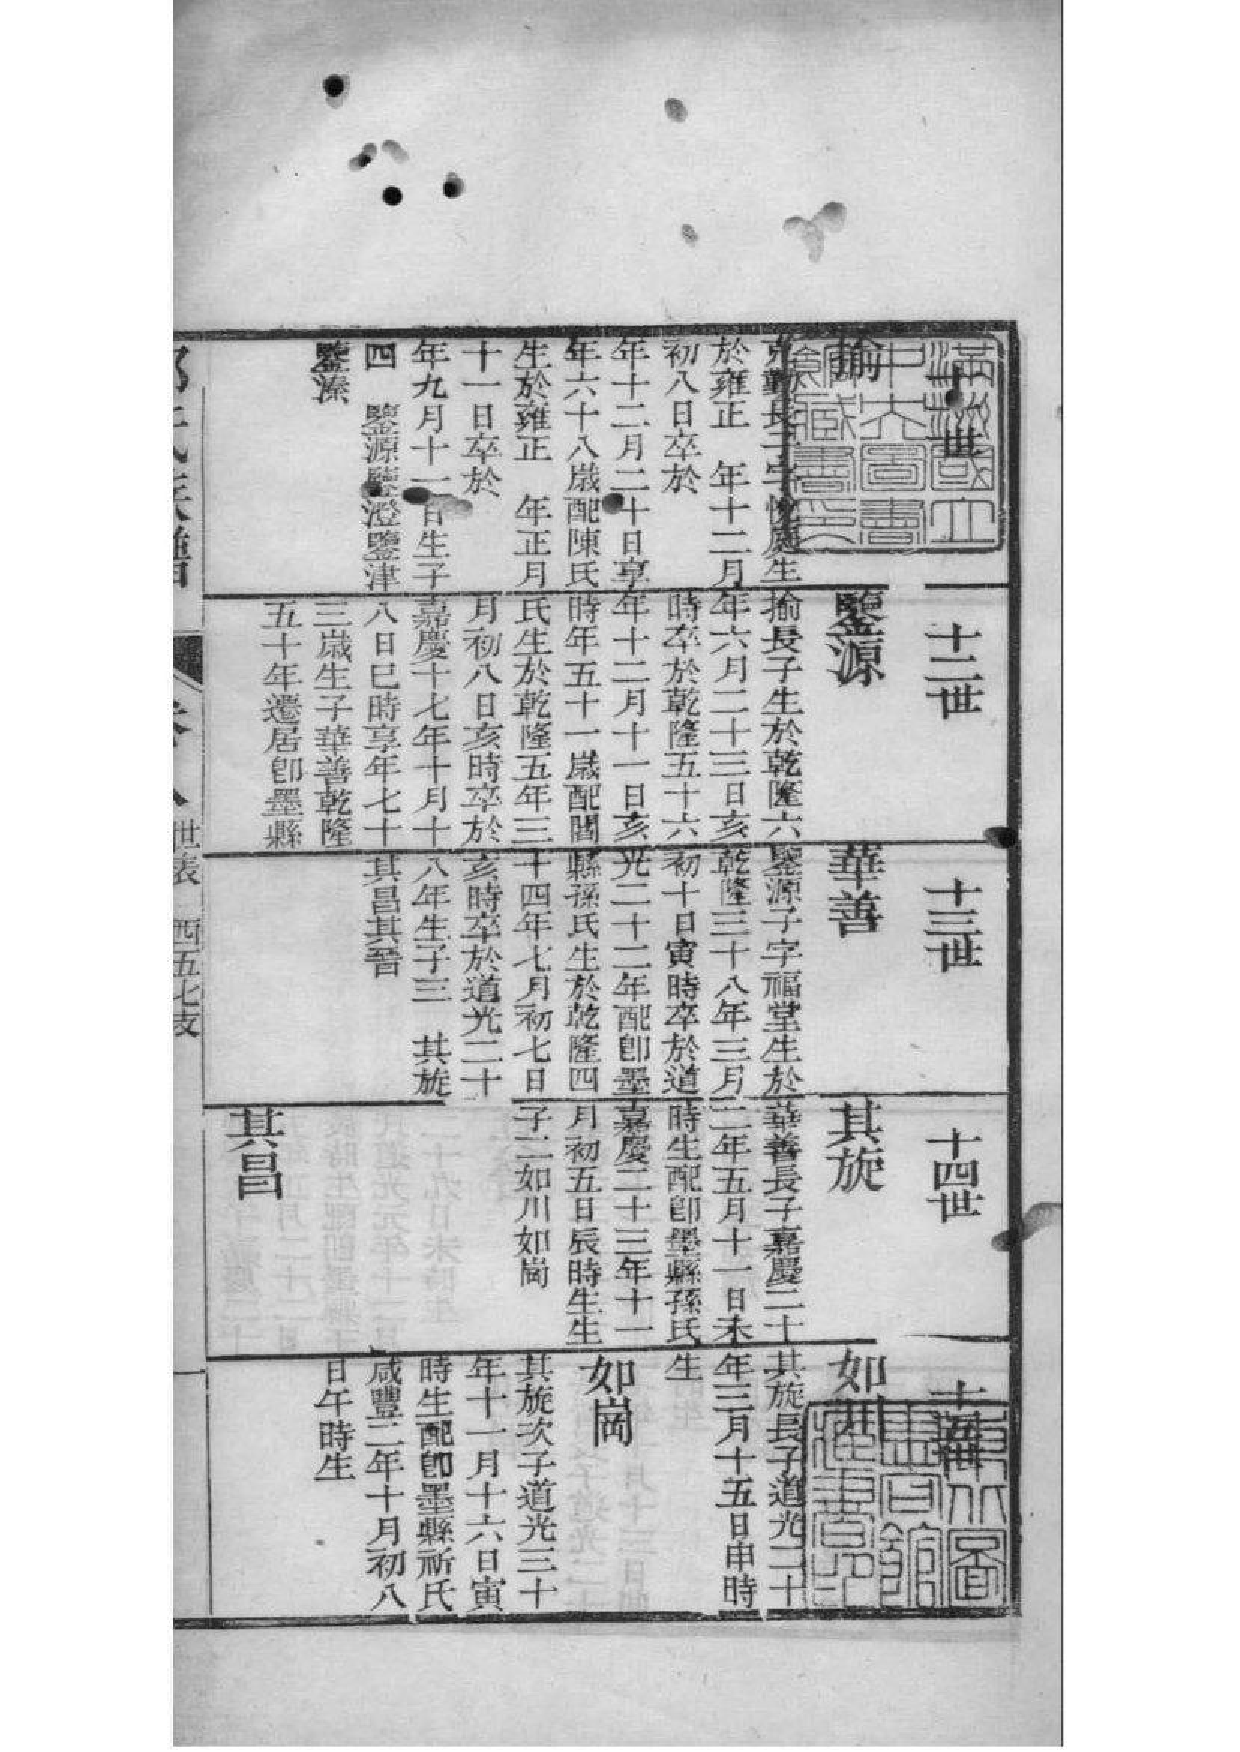 十一世
揄
克勤長子字悅庭生
於雍正　年十二月
初八日卒於
年十二月二十日享
年六十八歲配陳氏
生於雍正　年正月
十一日卒於
年九月十一日生子
四　鑒源鑒澄鑒津
鑒溱
十二世
鑒源
揄長子生於乾隆六
年六月二十三日亥
時卒於乾隆五十六
年十二月十一日亥
時年五十一歲配閻
氏生於乾隆五年三
月初八日亥時卒於
嘉慶十七年十月十
八日巳時享年七十
三歲生子華善乾隆
五十年遷居卽墨縣
十三世
華善
鑒源子字福堂生於
乾隆三十八年三月
初十日寅時卒於道
光二十二年配卽墨
縣孫氏生於乾隆四
十四年七月初七日
亥時卒於道光二十
八年生子三　其旋
其昌其晉
十四世
其旋
華善長子嘉慶二十
二年五月十一日未
時生配卽墨縣孫氏
嘉慶二十三年十一
月初五日辰時生生
子二如川如崗
其昌
十五世
如川
其旋長子道光二十
年三月十五日申時
生
如崗
其旋次子道光三十
年十一月十六日寅
時生配卽墨縣祈氏
咸豐二年十月初八
日午時生
世表　四五七支
一